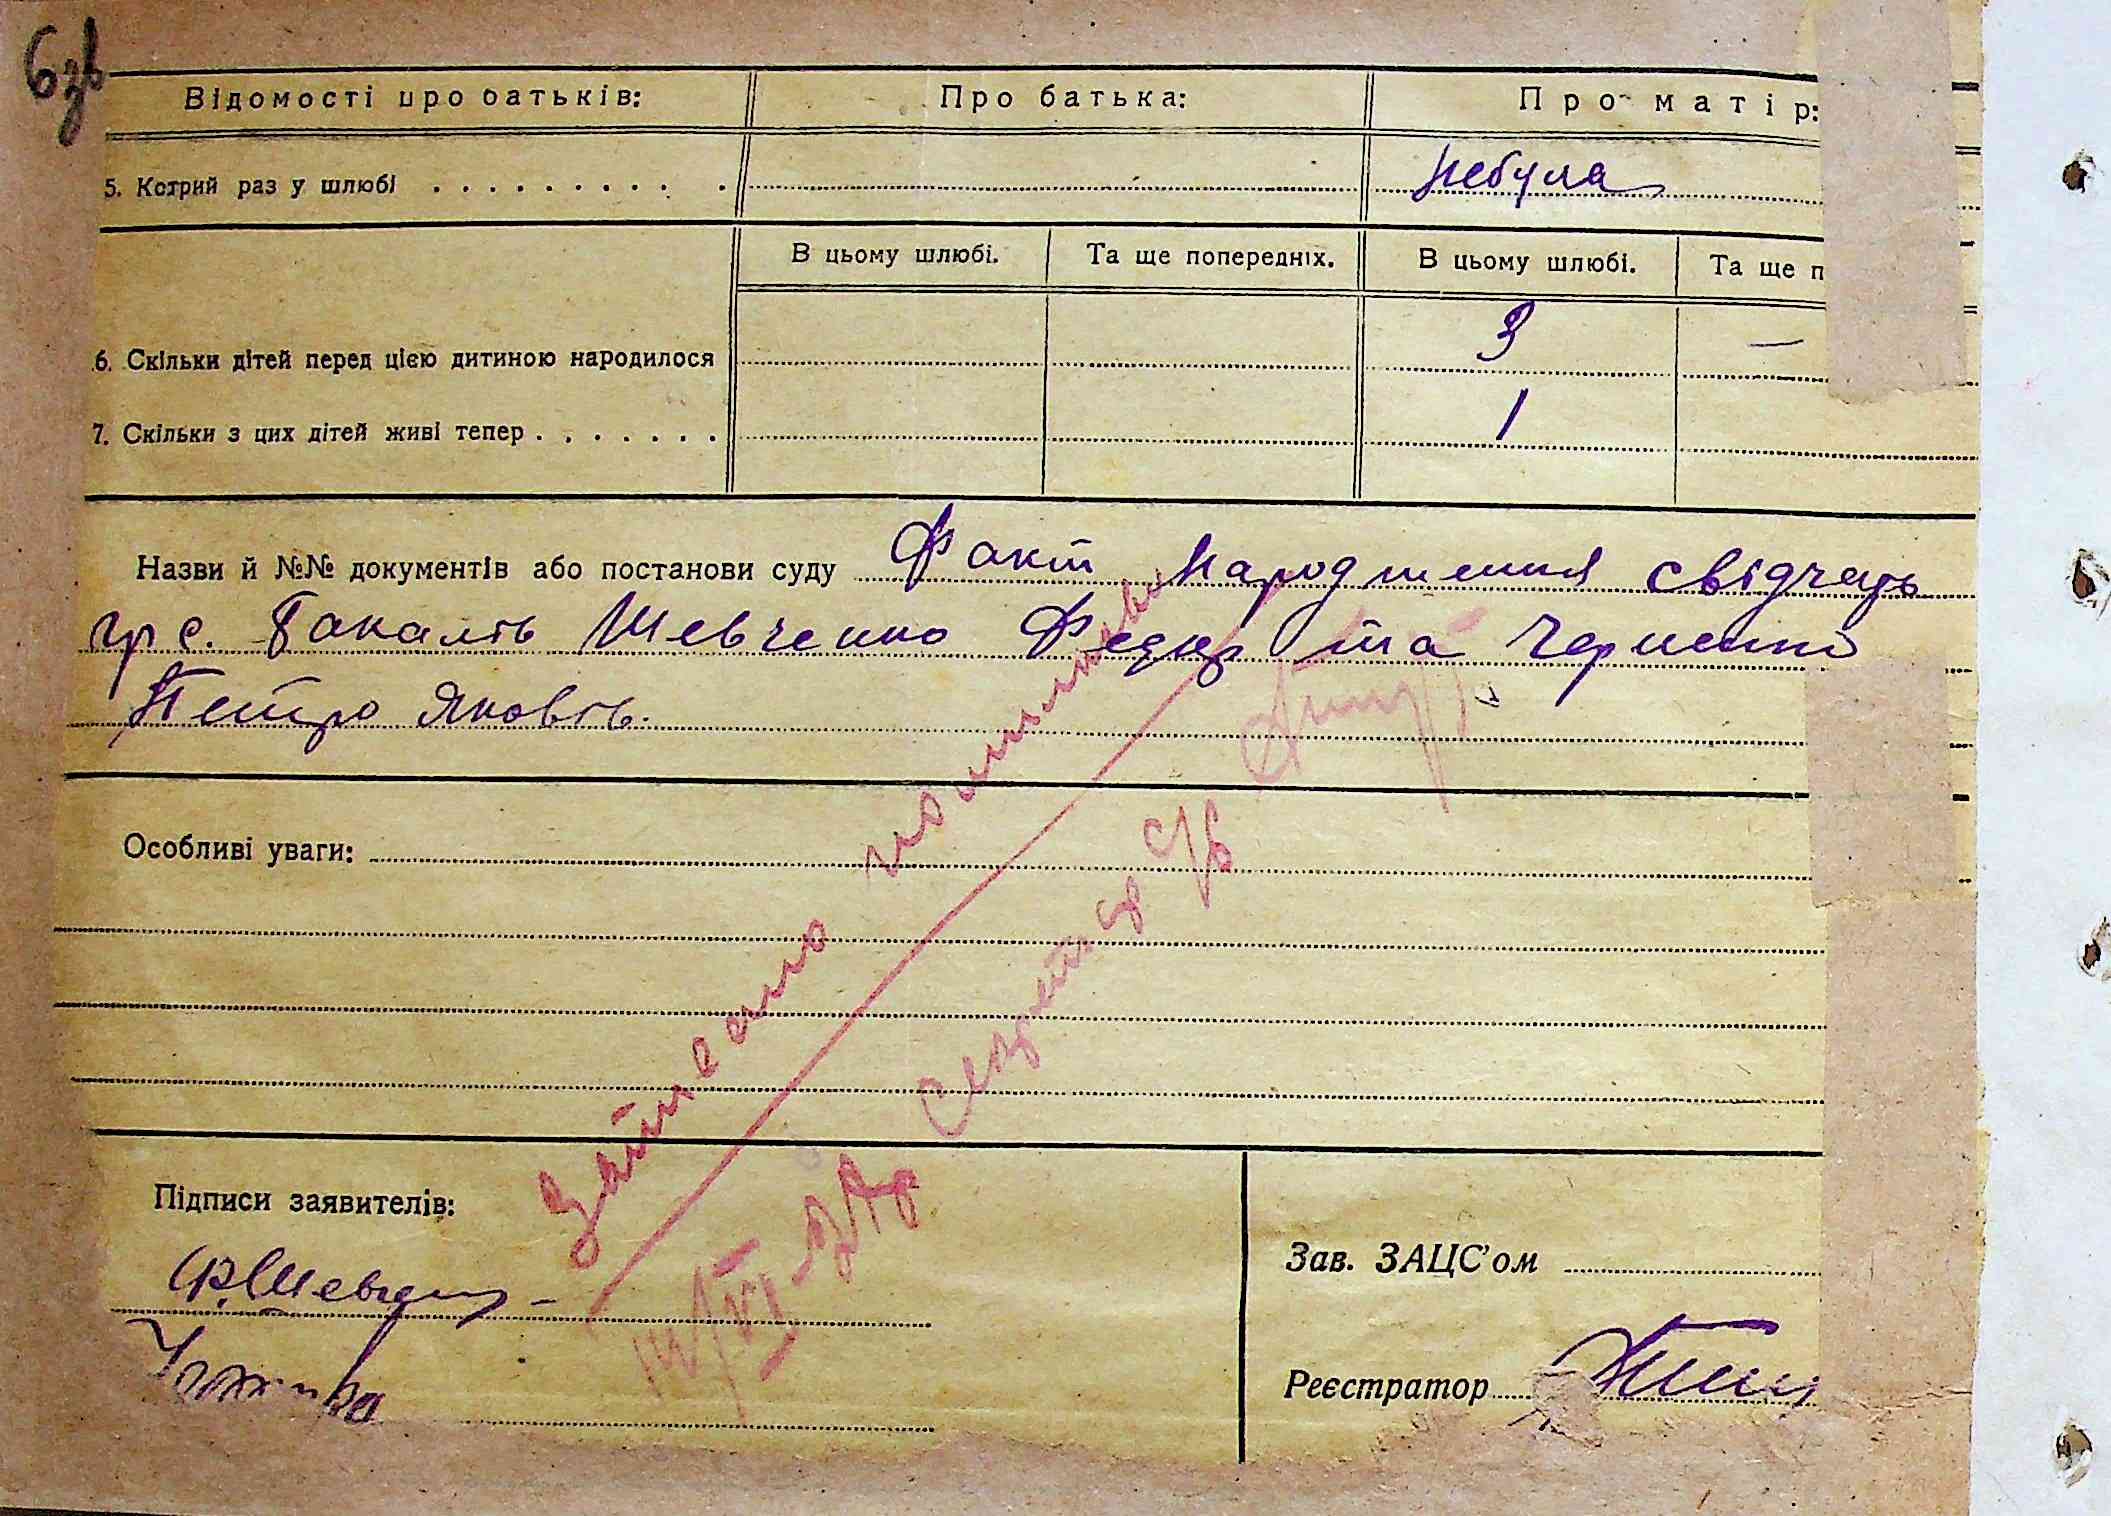 6зв
Відомості про батьків: Про батька: Про матір:
5. Котрий раз у шлюбі небула
В цьому шлюбі. Та ще попередніх. В цьому шлюбі. Та ще п
6. Скільки дітей перед цією дитиною народилося 3 —
7. Скільки з цих дітей живі тепер 1
Назви й №№ документів або постанови суду Факт народження свідчать
гр с. Бакаль Шевченко Федір та Черненко
Петро Яковів.
Особливі уваги:
Записано
Секретар с/р
Підписи заявителів:
Ф. Шевченко
Зав. ЗАЦС'ом
Реєстратор